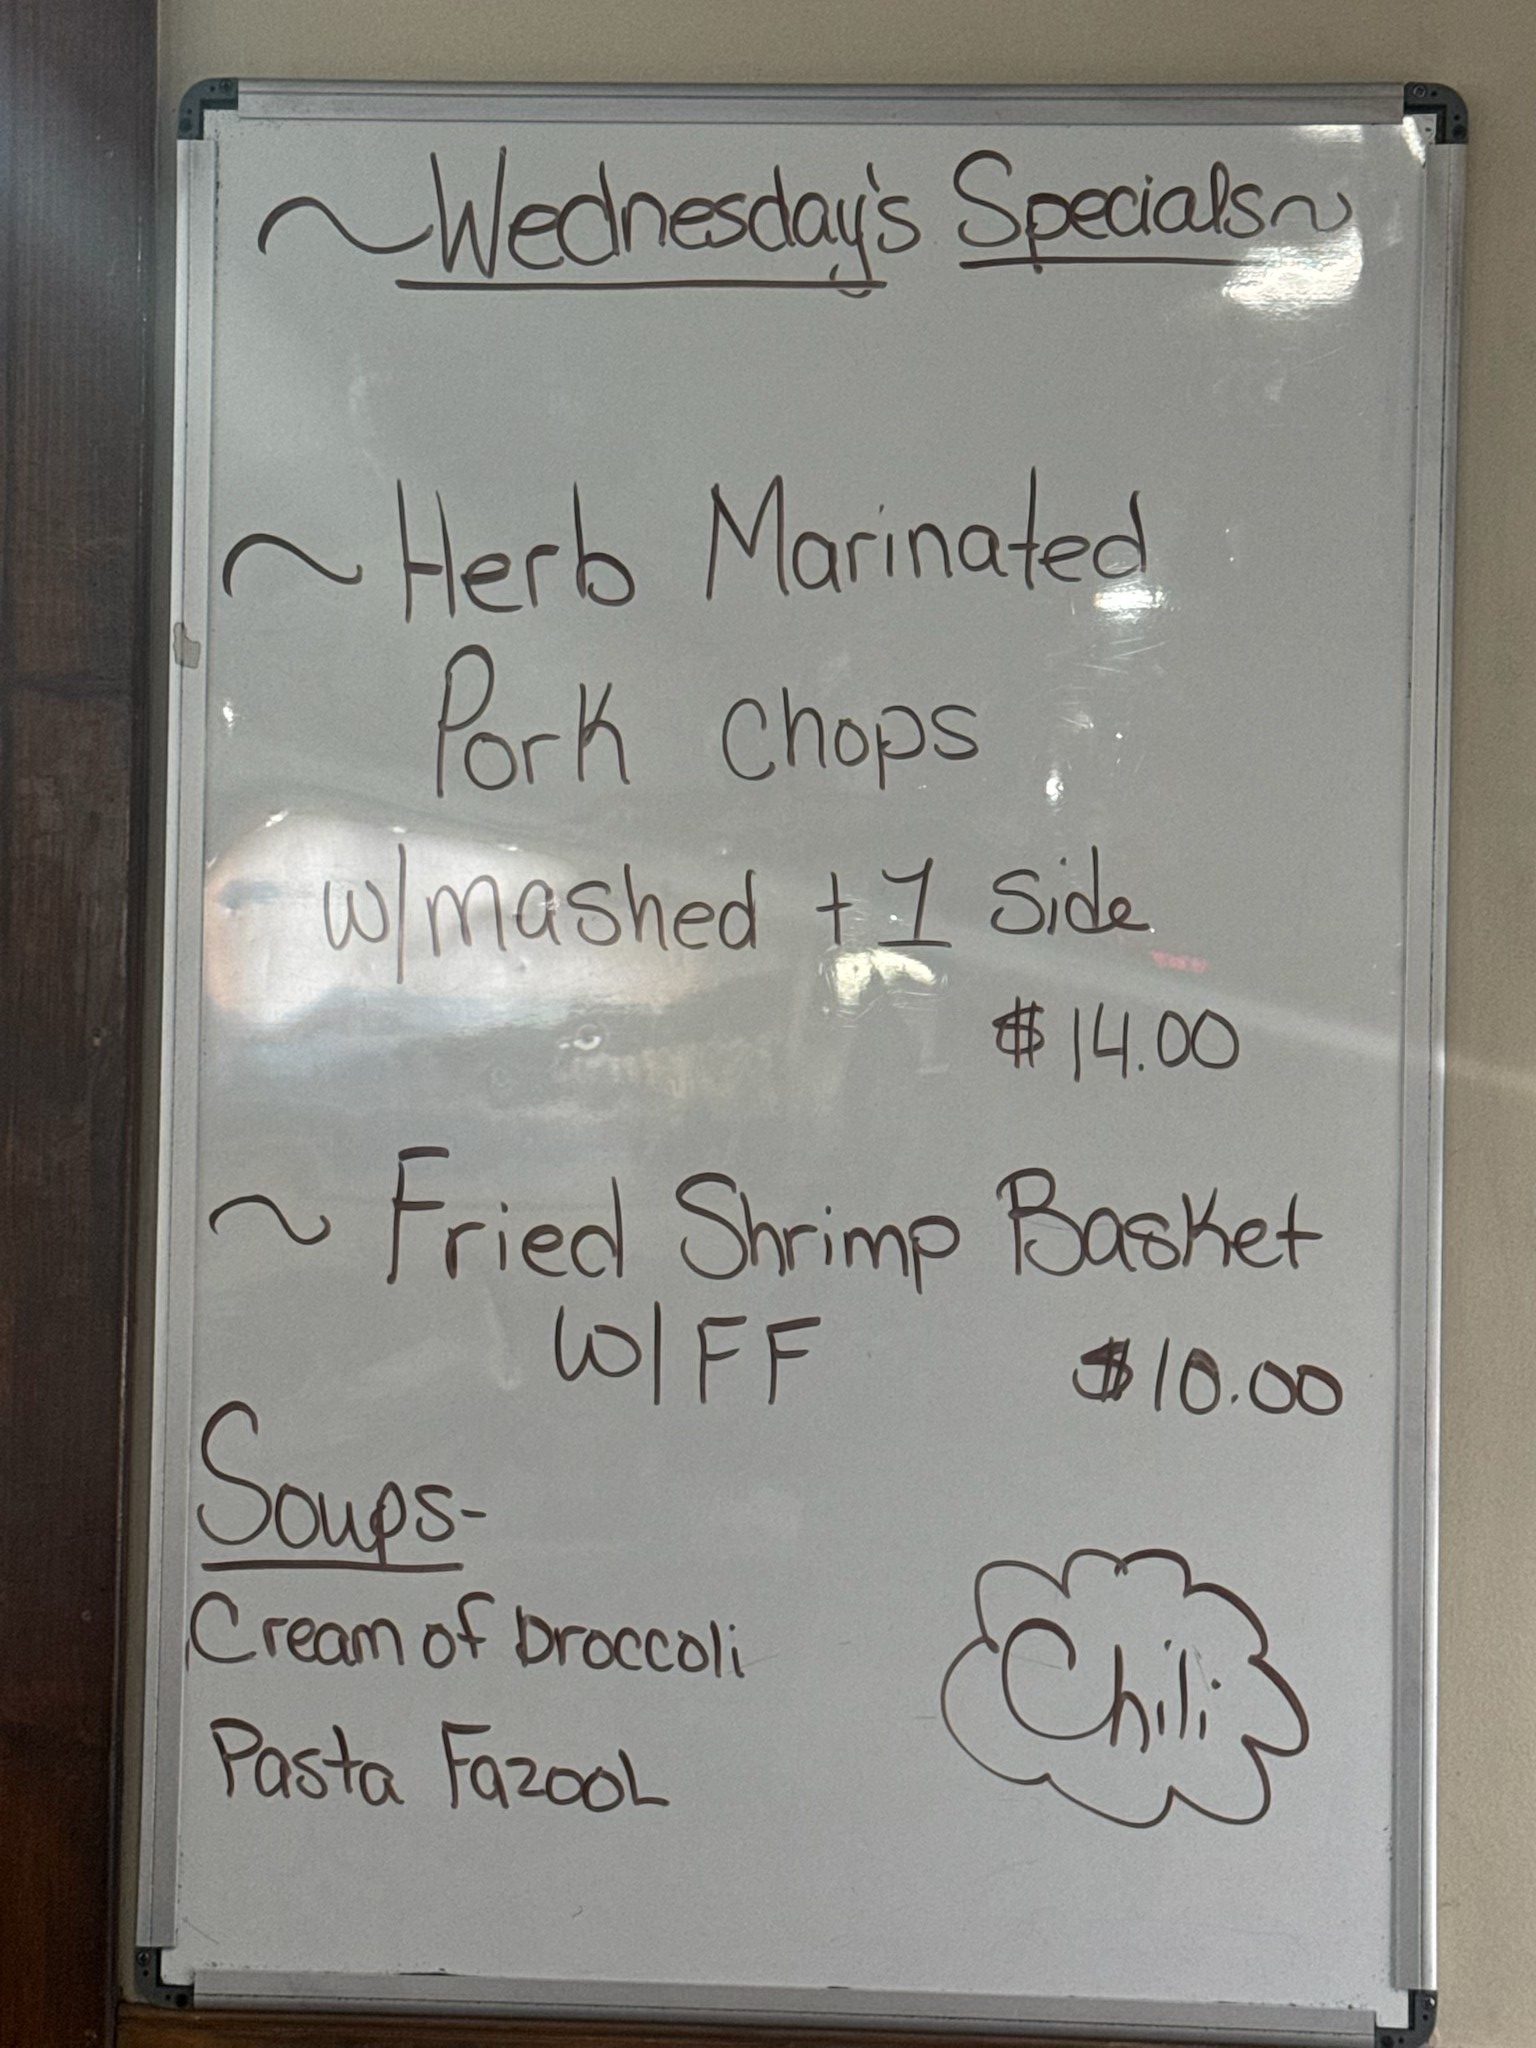 ~Wednesday's Specials~
~ Herb Marinated
Pork chops
w/mashed + 1 side
$14.00
~ Fried Shrimp Basket
w/FF $10.00
Soups-
Cream of broccoli
Pasta Fazool
Chili